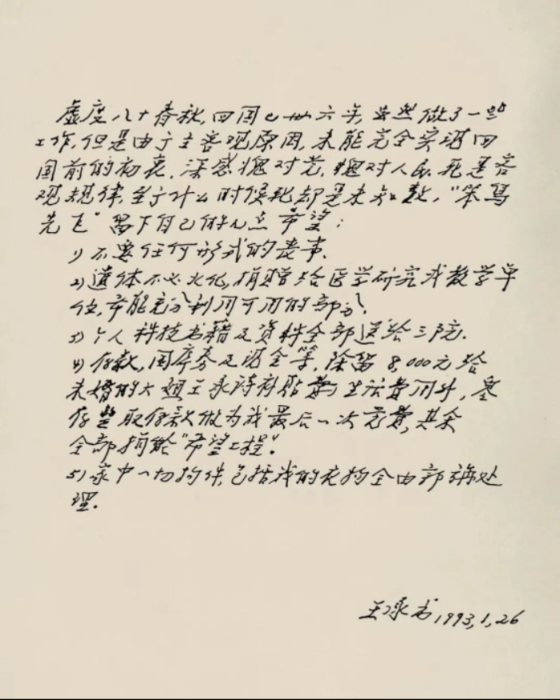 虚度八十春秋,回国已卅六年,虽然做了一些
工作,但是由于主客观原因,未能完全实现回
国前的初衷,深感愧对党,愧对人民。死是客
观规律,至于什么时候死却是未知数,“笨鸟
先飞”留下自己的几点希望:
1)不要任何形式的丧事。
2)遗体不必火化,捐赠给医学研究或教学单
位,希能充分利用可用的部分。
3)个人科技书籍及资料全部送给三院。
4)存款,国库券及现金等,除留8,000元给
未婚的大姐王承诗补贴 生活费用外,
存整取存款做为我最后一次党费,其余
全部捐给“希望工程”。
5)家中一切物件,包括我的衣物全由郭 处
理。
王承书1993,1,26